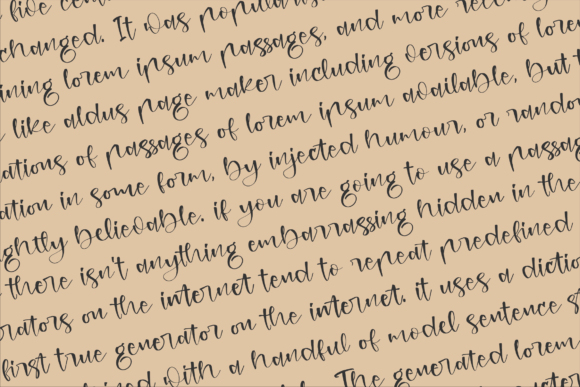 five cen
changed. It was popularis
ining lorem ipsum passages, and more recen
like aldus page maker including versions of lore
ations of passages of lorem ipsum available, but t
ation in some form, by injected humour, or rando
ghtly believable. if you are going to use a passag
there isn't anything embarrassing hidden in the
rators on the internet tend to repeat predefined
first true generator on the internet. it uses a dictio
ined with a handful of model sentence st
The generated lorem